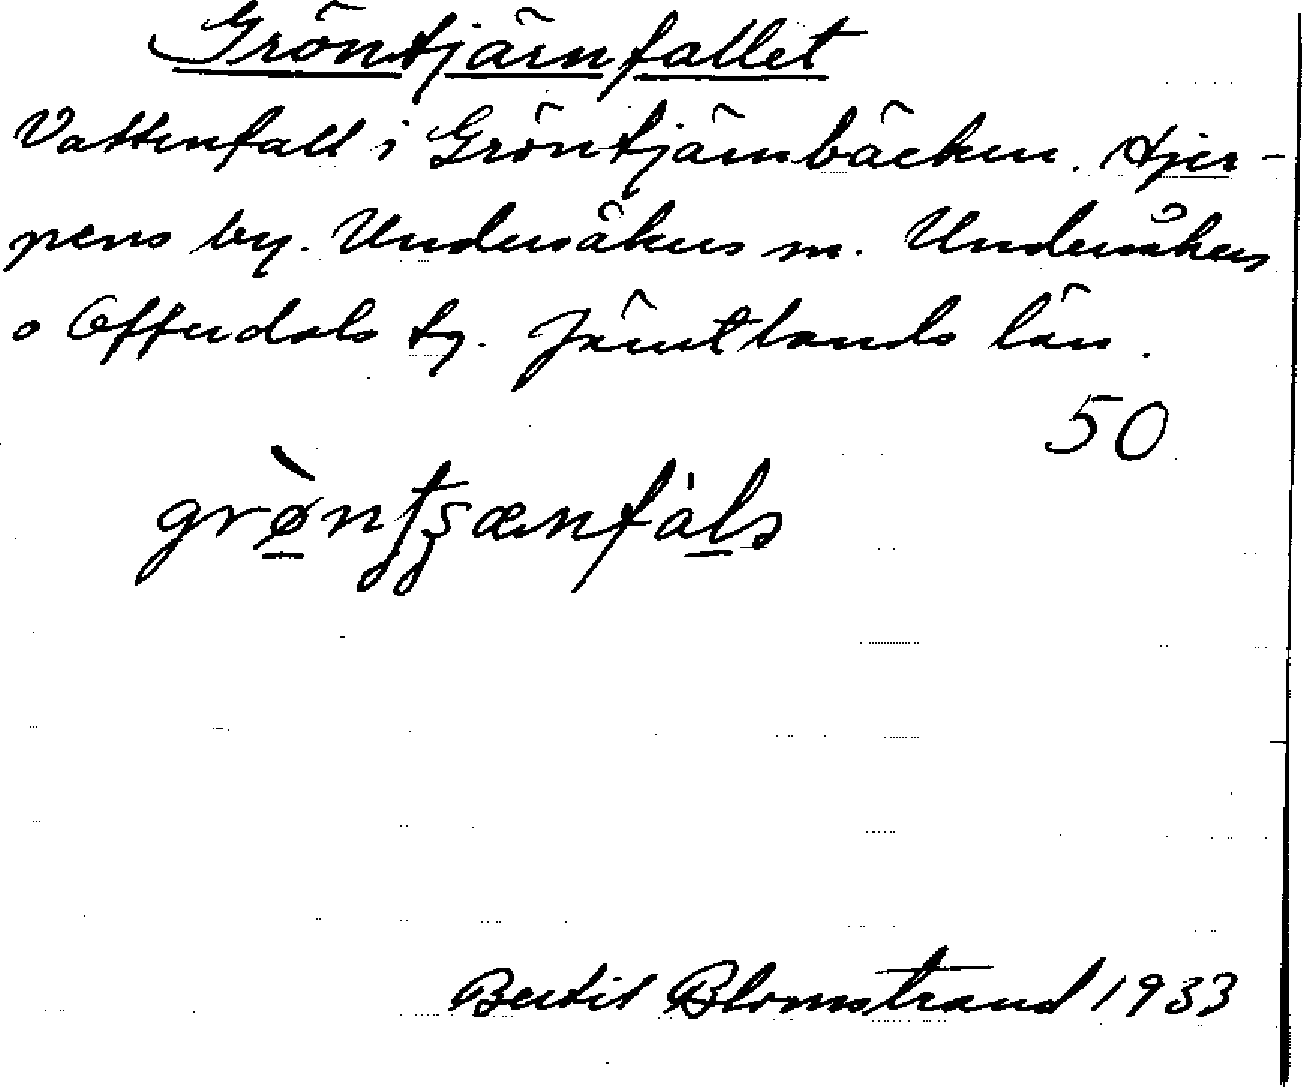 Gröntjärnfallet
Vattenfall i Gröntjärnbäcken. Hjer-
pens by. Undersåkers sn. Undersåkers
o Offerdals tg. Jämtlands län.
50
Bertil Blomstrand 1933